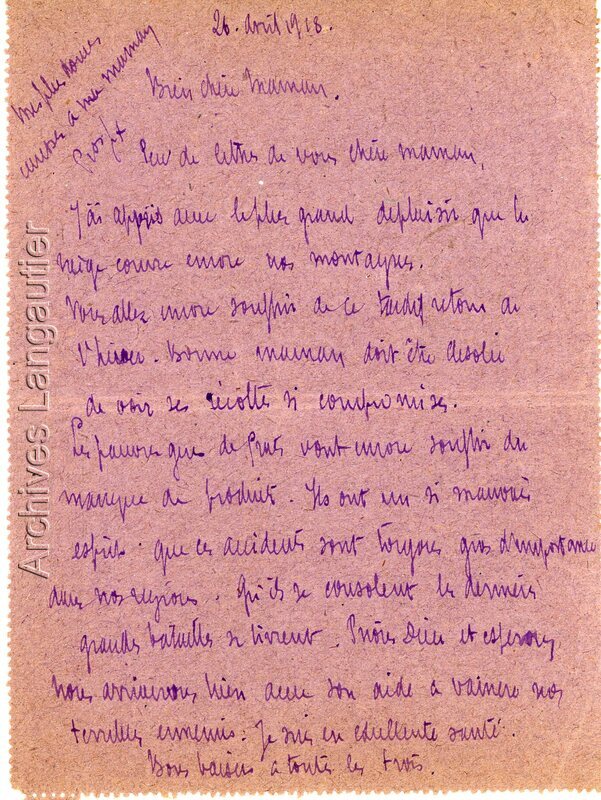 26. Avril 1918.
Mes plus douces
caresses à ma maman
Bien chère Maman.
Peu de lettres de vous chère maman,
J'ai appris avec le plus grand deplaisir que la
neige couvre encore nos montagnes.
Vous allez encore souffrir de ce tardif retour de
l'hiver. Bonne maman doit être desolée
de voir ses récoltes si compromises.
Les pauvres gens de vont encore souffrir du
manque de produits. Ils ont un si mauvais
esprit que ces accidents sont toujours gros d'importance
dans nos régions. Qu'ils se consolent les dernières
grandes batailles se livrent. Prions Dieu et esperons,
nous arriverons bien avec son aide à vaincre nos
terribles ennemis. Je suis en excellente santé.
Bons baisers a toutes les trois.
Archives Langautier